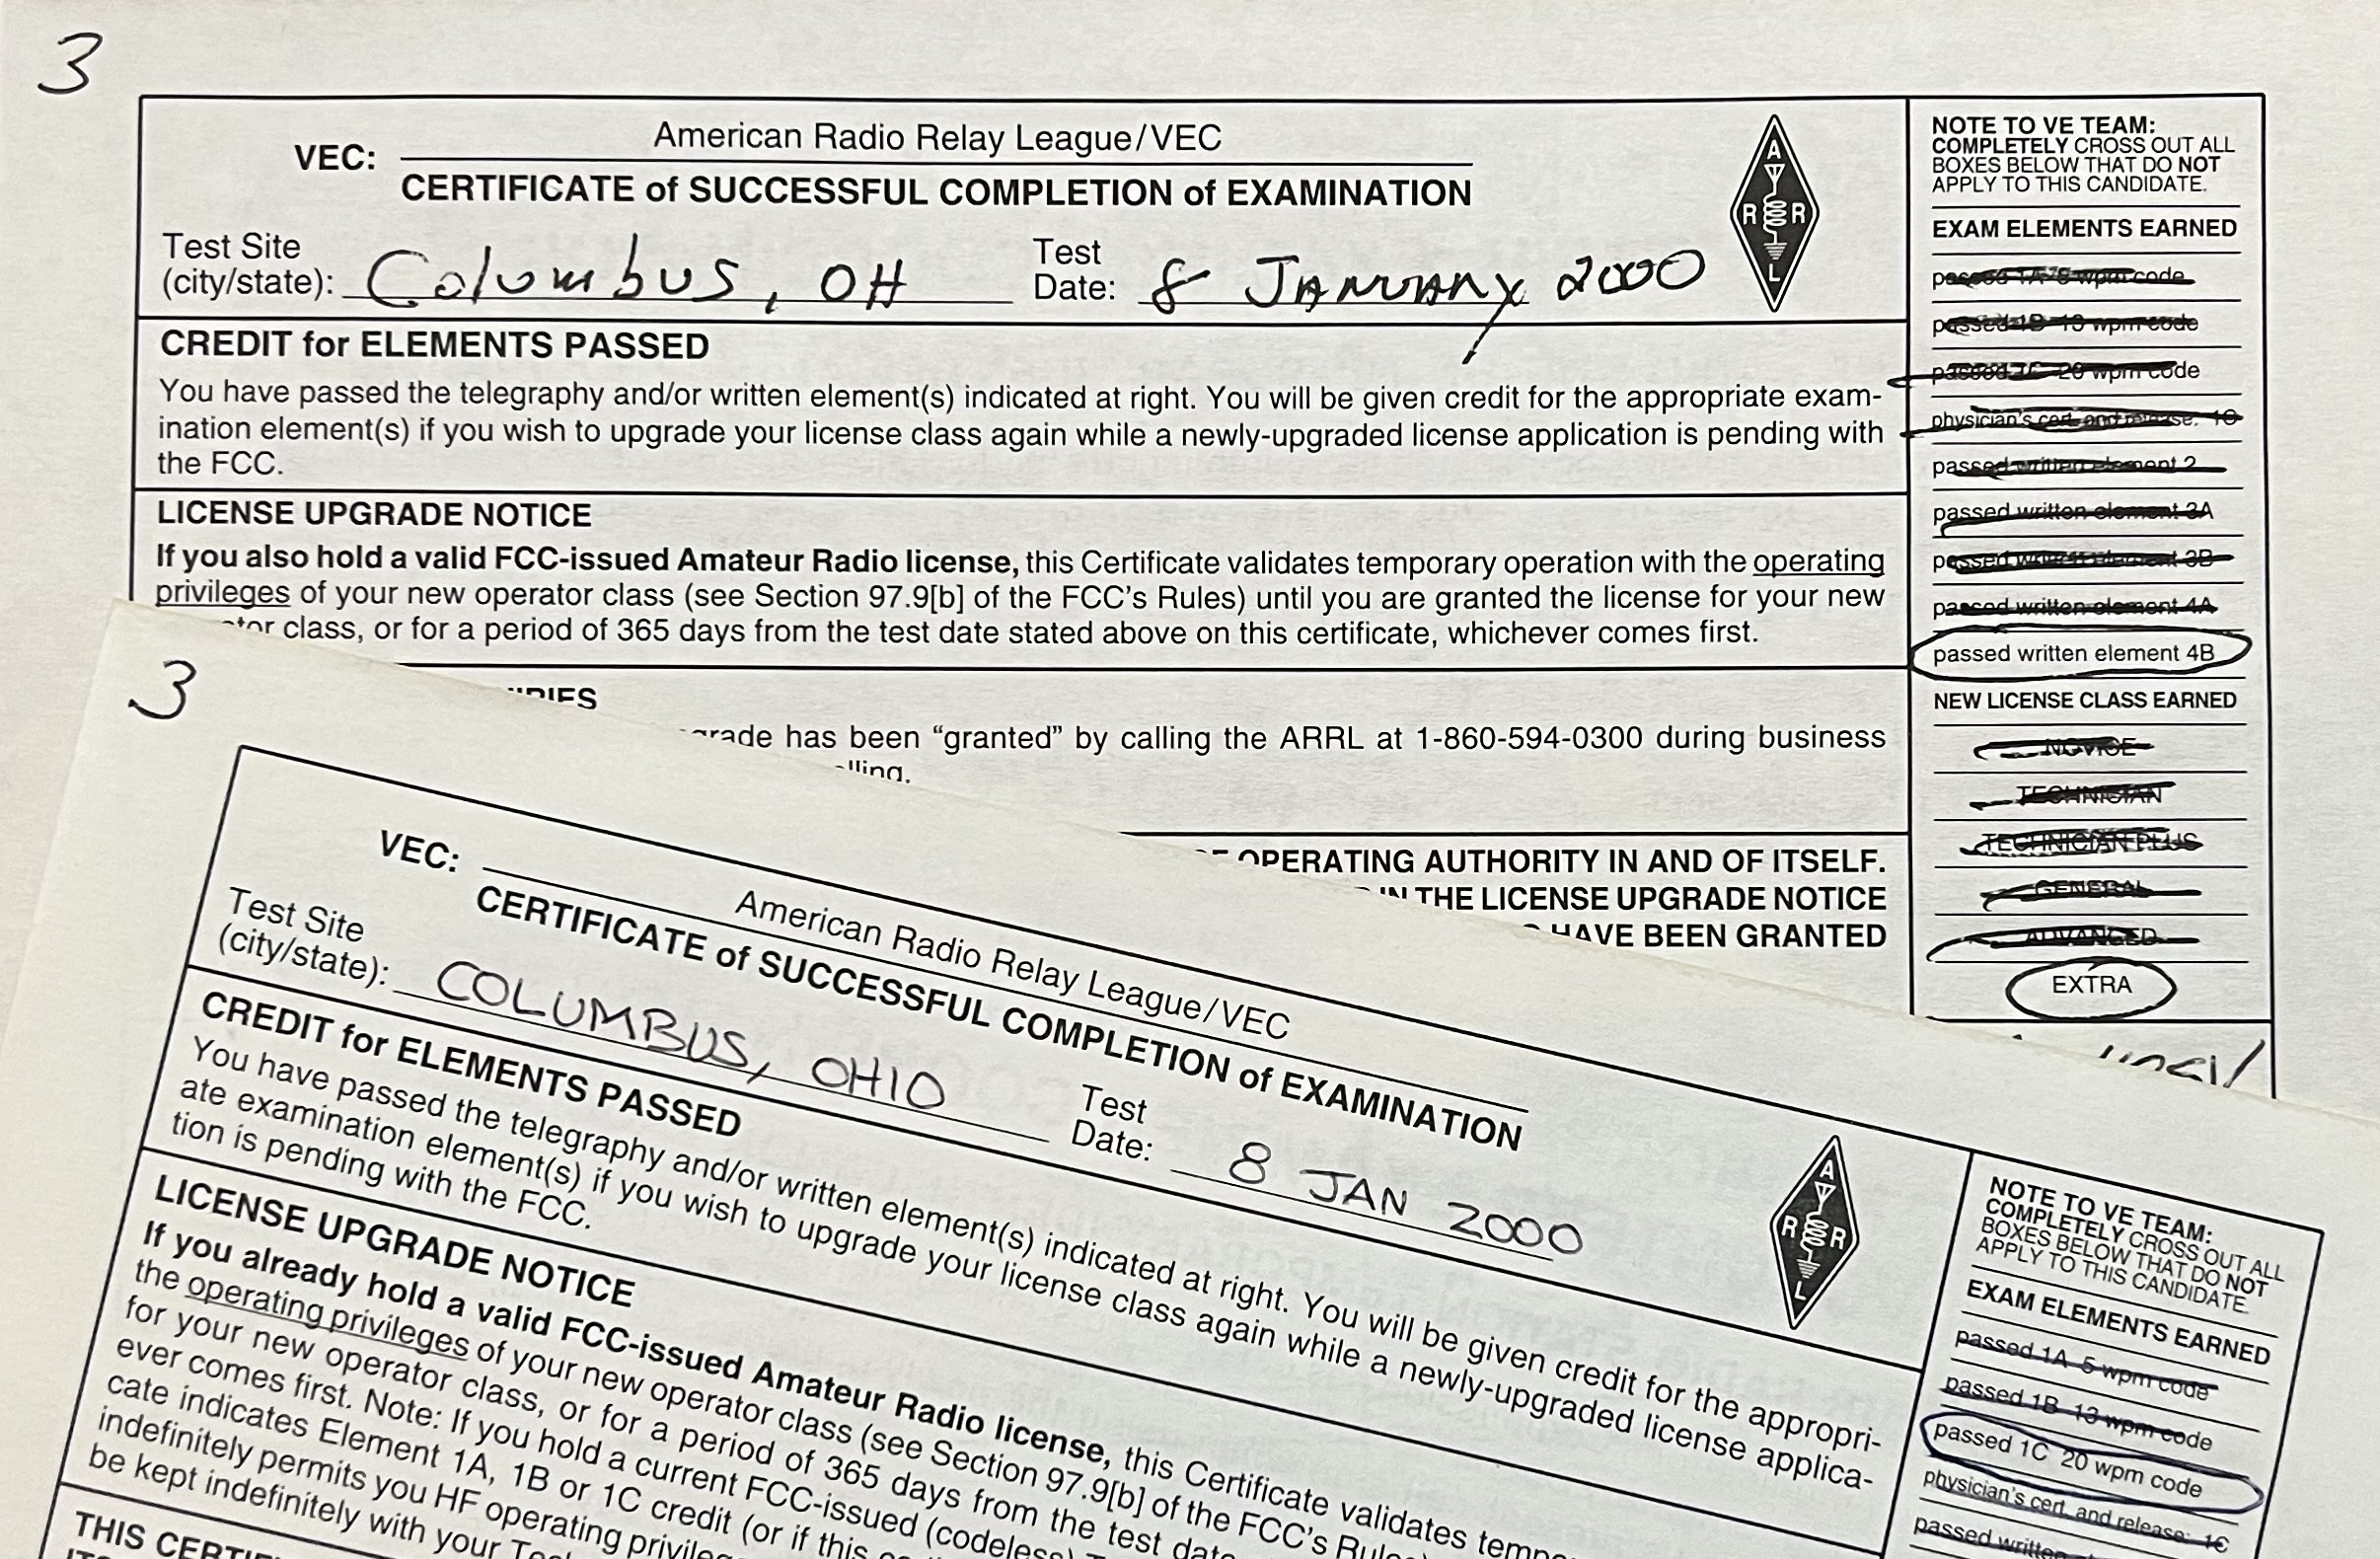 3
American Radio Relay League/VEC
VEC:
CERTIFICATE of SUCCESSFUL COMPLETION of EXAMINATION
Test Site
(city/state): Columbus, OH
Test
Date: 8 JANUARY 2000
A
R R
L
CREDIT for ELEMENTS PASSED
You have passed the telegraphy and/or written element(s) indicated at right. You will be given credit for the appropriate exam-
ination element(s) if you wish to upgrade your license class again while a newly-upgraded license application is pending with
the FCC.
LICENSE UPGRADE NOTICE
If you also hold a valid FCC-issued Amateur Radio license, this Certificate validates temporary operation with the operating
privileges of your new operator class (see Section 97.9[b] of the FCC's Rules) until you are granted the license for your new
class, or for a period of 365 days from the test date stated above on this certificate, whichever comes first.
has been "granted" by calling the ARRL at 1-860-594-0300 during business
OPERATING AUTHORITY IN AND OF ITSELF.
THE LICENSE UPGRADE NOTICE
HAVE BEEN GRANTED
NOTE TO VE TEAM:
COMPLETELY CROSS OUT ALL
BOXES BELOW THAT DO NOT
APPLY TO THIS CANDIDATE.
EXAM ELEMENTS EARNED
passed 1A 5 wpm code
passed 1B 13 wpm code
passed 1C 20 wpm code
physician's cert. and release: 1C
passed written element 2
passed written element 3A
passed written element 3B
passed written element 4A
passed written element 4B
NEW LICENSE CLASS EARNED
NOVICE
TECHNICIAN
TECHNICIAN PLUS
GENERAL
ADVANCED
EXTRA
3
VEC:
American Radio Relay League/VEC
CERTIFICATE of SUCCESSFUL COMPLETION of EXAMINATION
Test Site
(city/state): COLUMBUS, OHIO
Test
Date: 8 JAN 2000
A
R R
L
CREDIT for ELEMENTS PASSED
You have passed the telegraphy and/or written element(s) indicated at right. You will be given credit for the appropri-
ate examination element(s) if you wish to upgrade your license class again while a newly-upgraded license applica-
tion is pending with the FCC.
LICENSE UPGRADE NOTICE
If you already hold a valid FCC-issued Amateur Radio license, this Certificate validates
the operating privileges of your new operator class (see Section 97.9[b] of the FCC's
for your new operator class, or for a period of 365 days from the test date
ever comes first. Note: If you hold a current FCC-issued (codeless)
cate indicates Element 1A, 1B or 1C credit (or if this
indefinitely permits you HF operating
be kept indefinitely with your
THIS
NOTE TO VE TEAM:
COMPLETELY CROSS OUT ALL
BOXES BELOW THAT DO NOT
APPLY TO THIS CANDIDATE.
EXAM ELEMENTS EARNED
passed 1A 5 wpm code
passed 1B 13 wpm code
passed 1C 20 wpm code
physician's cert. and release: 1C
passed written